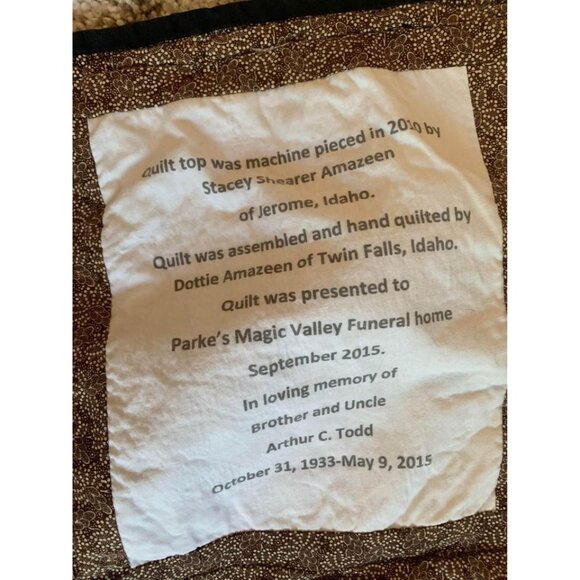 Quilt top was machine pieced in 2010 by
Stacey Shearer Amazeen
of Jerome, Idaho.
Quilt was assembled and hand quilted by
Dottie Amazeen of Twin Falls, Idaho.
Quilt was presented to
Parke's Magic Valley Funeral home
September 2015.
In loving memory of
Brother and Uncle
Arthur C. Todd
October 31, 1933-May 9, 2015